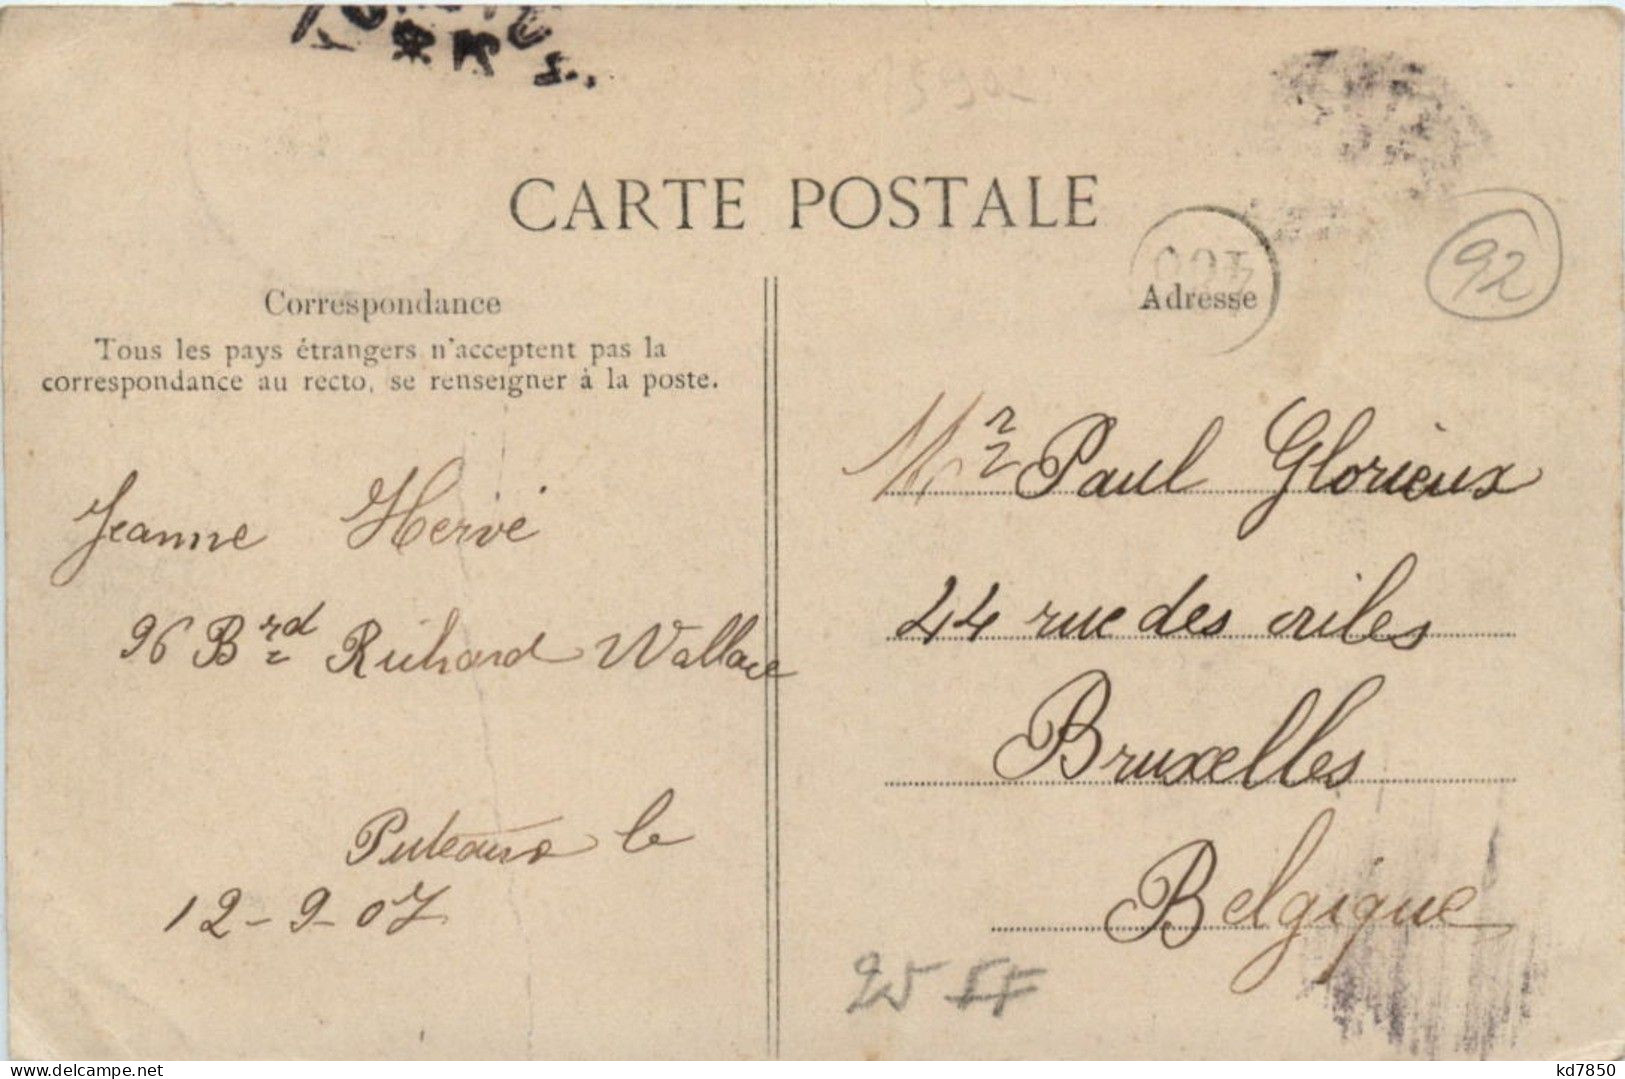 CARTE POSTALE
Correspondance
Tous les pays étrangers n'acceptent pas la
correspondance au recto, se renseigner à la poste.
Jeanne Hervé
96 Brd Richard Wallace
Puteaux le
12-9-07
Adresse
92
Mr Paul Glorieux
44 rue des
Bruxelles
Belgique
25 FF
kd7850